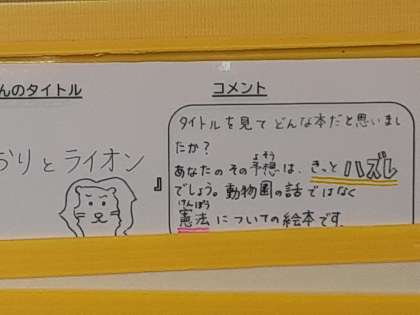 んのタイトル
おりとライオン
』
コメント
タイトルを見てどんな本だと思いまし
たか？
よそう
あなたのその予想は、きっとハズレ
でしょう。動物園の話ではなく
けんぽう
憲法についての絵本です。